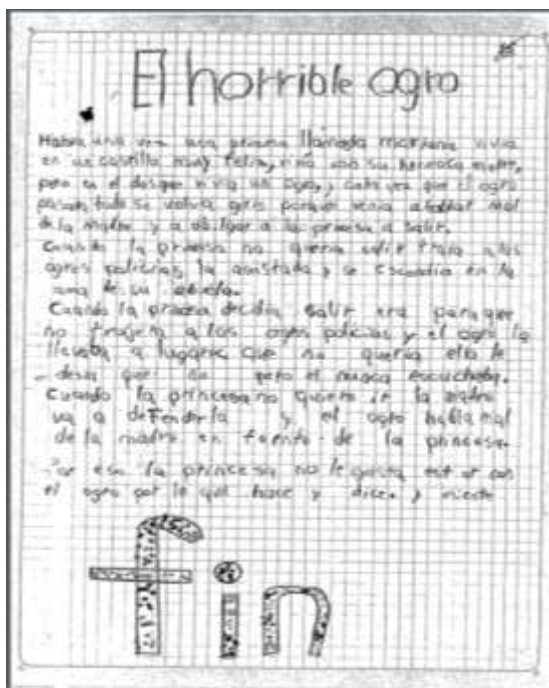 El horrible ogro
Había una vez una princesa llamada mariana vivia
en un castillo muy feliz, vivia con su hermosa madre,
pero en el bosque vivia un ogro, cada vez que el ogro
pasaba todo se volvia gris porque venia a hablar mal
de la madre y a obligar a la princesa a salir.
Cuando la princesa no queria salir traia a los
ogros policias, la asustaba y se escondia en la
cama de su abuela.
Cuando la princesa decidia salir era para que
no trajera a los ogros policias y el ogro la
llevaba a lugares que no queria ella le
decia que no pero el nunca escuchaba.
Cuando la princesa no quiere ir la madre
va a defenderla y el ogro habla mal
de la madre en frente de la princesa.
Por eso la princesa no le gusta estar con
el ogro por lo que hace y dice. y miente
fin